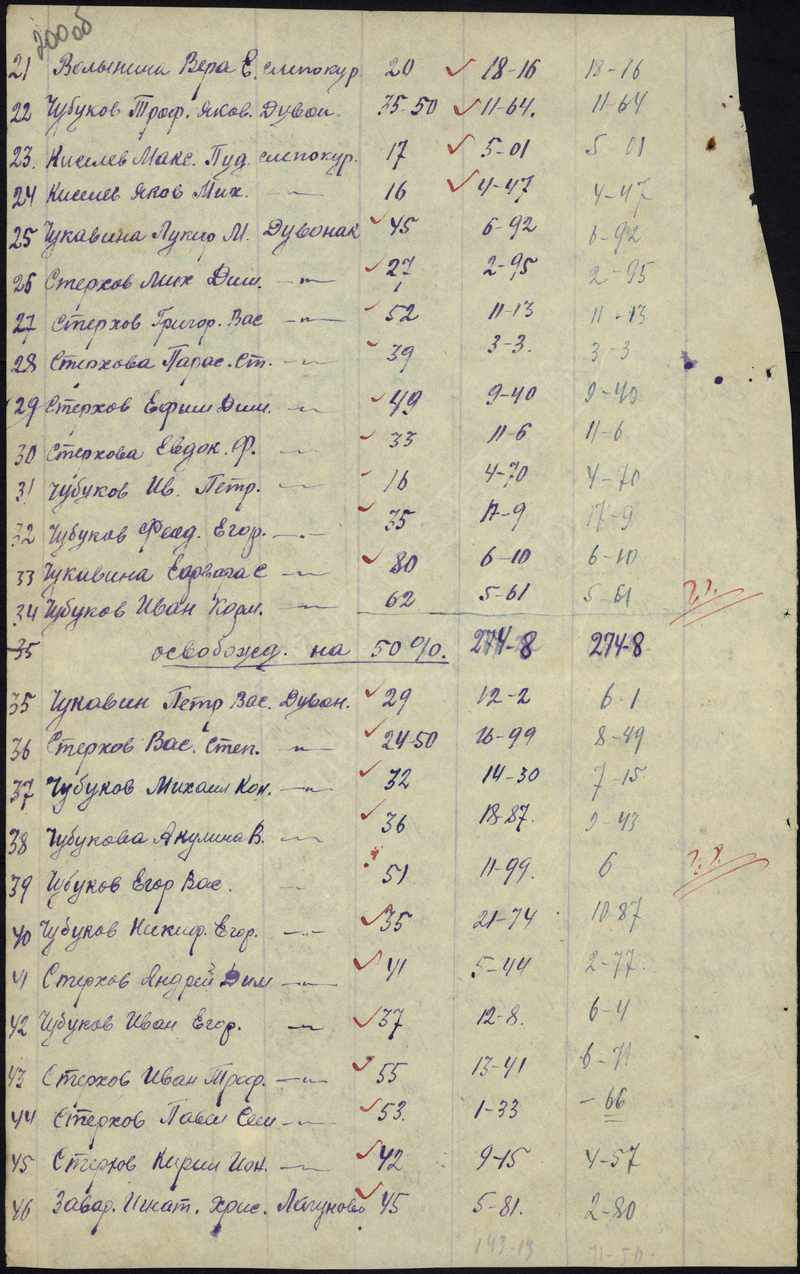 200 об
21 Волынина Вера Е. слепокур. 20 18-16 18-16
22 Чубуков Троф. Яков. Дувон. 35-50 11-64. 11-64
23. Киселев Макс. Пуд. слепокур. 17 5-01 5-01
24 Киселев Яков Мих. —"— 16 4-47 4-47
25 Чукавина Лукер М. Дувонак 45 6-92 6-92
26 Стерхов Мих Дим. —"— 27 2-95 2-95
27 Стерхов Григор. Вас —"— 52 11-13 11-13
28 Стерхова Парас. Ст. —"— 39 3-3. 3-3
29 Стерхов Ефим Дим. —"— 49 9-40 9-40
30 Стерхова Евдок. Ф. —"— 33 11-6 11-6
31 Чубуков Ив. Петр. —"— 16 4-70 4-70
32 Чубуков Феод. Егор. —"— 35 17-9 17-9
33 Чукавина С —"— 80 6-10 6-10
34 Чубуков Иван Козм. —"— 62 5-61 5-61 ?.?.
35 освобожд. на 50%. 274-8 274-8
35 Чукавин Петр Вас. Дувон. 29 12-2 6-1
36 Стерхов Вас. Степ. —"— 24-50 16-99 8-49
37 Чубуков Михаил Кон. —"— 32 14-30 7-15
38 Чубукова Акулина В. —"— 36 18-87. 9-43
39 Чубуков Егор Вас. —"— 51 11-99. 6 ?.?.
40 Чубуков Никиф. Егор. —"— 35 21-74 10-87
41 Стерхов Андрей Дим —"— 41 5-44 2-77.
42 Чубуков Иван Егор. —"— 37 12-8. 6-4
43 Стерхов Иван Троф. —"— 55 13-41 6-71
44 Стерхов Павел Сем —"— 53. 1-33 -66
45 Стерхов Кирил Ион. —"— 42 9-15 4-57
46 Завар. Игнат. Хрис. Лагуново 45 5-81. 2-80
143-13